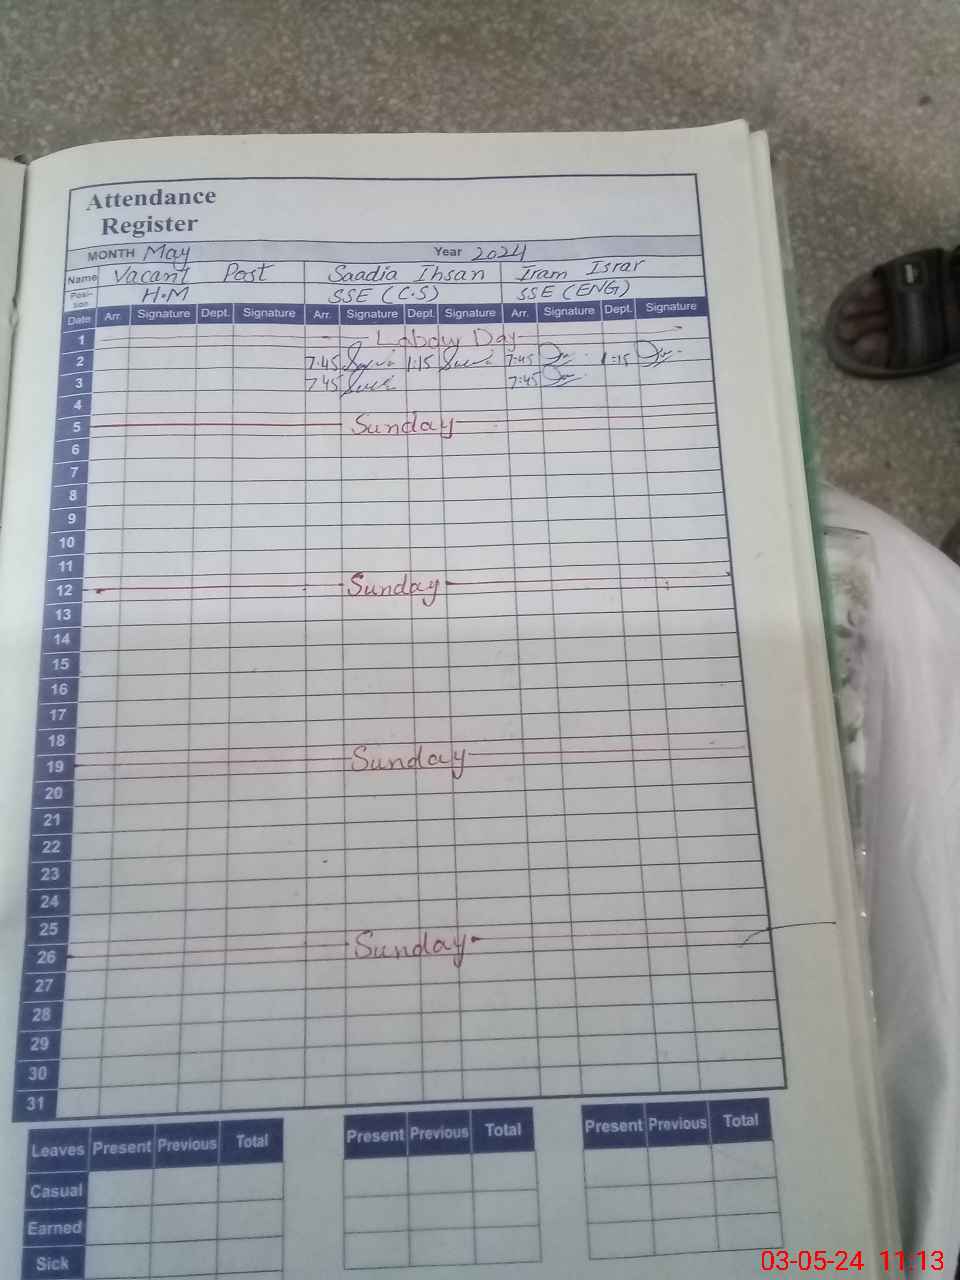 Attendance
Register
MONTH May Year 2024
Name Vacant Post Saadia Ihsan Iram Israr
Posi-
sion H.M SSE (C.S) SSE (ENG)
Date Arr. Signature Dept. Signature Arr. Signature Dept. Signature Arr. Signature Dept. Signature
1 Labour Day
2 7:45 1:15 7:45 1:15
3 7:45 7:45
4
5 Sunday
6
7
8
9
10
11
12 Sunday
13
14
15
16
17
18
19 Sunday
20
21
22
23
24
25
26 Sunday
27
28
29
30
31
Leaves Present Previous Total Present Previous Total Present Previous Total
Casual
Earned
Sick
03-05-24 11.13